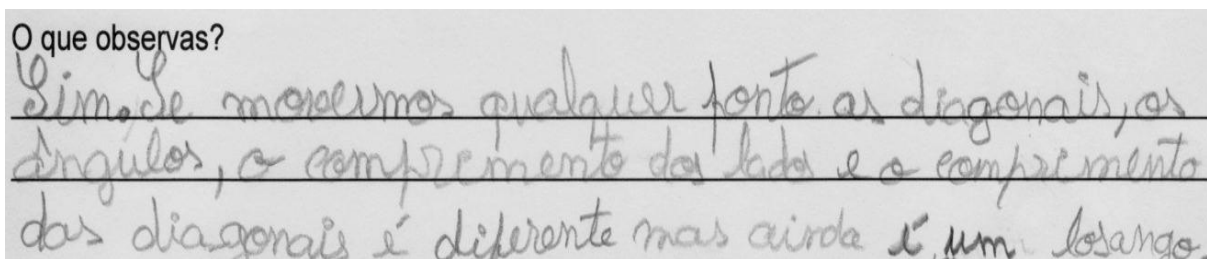 O que observas?
Sim. Se movermos qualquer ponto as diagonais, os
ângulos, o comprimento dos lados e o comprimento
das diagonais é diferente mas ainda é um losango.